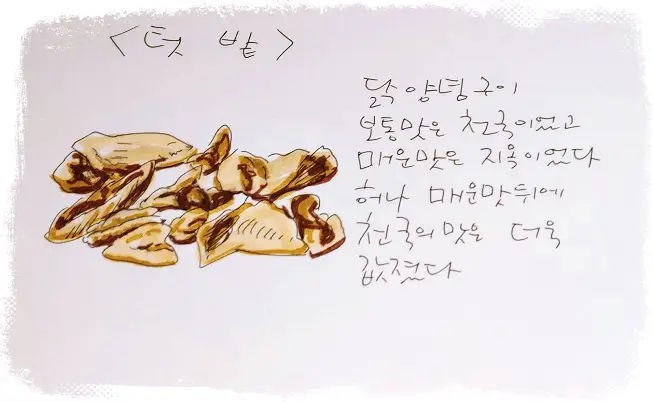 <텃 밭>
닭 양념구이
보통맛은 천국이었고
매운맛은 지옥이었다
허나 매운맛뒤에
천국의 맛은 더욱
값졌다